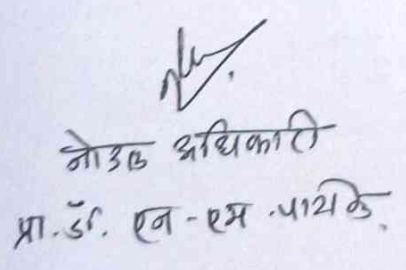 नोडल अधिकारी
प्रा. डॉ. एन - एम . पायके.